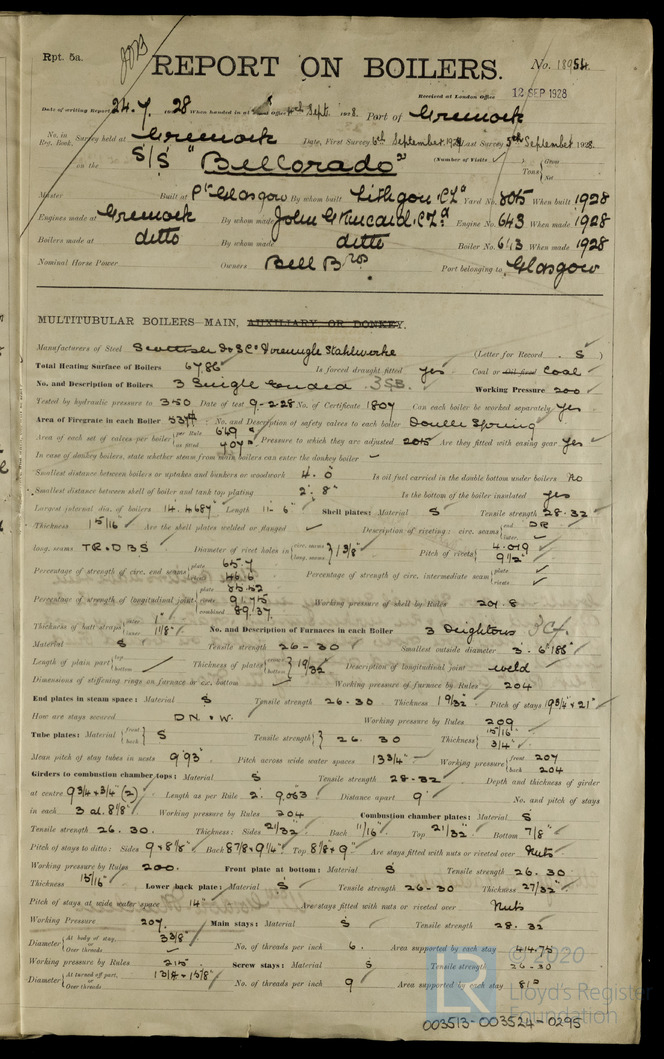 Rpt. 5a.
REPORT ON BOILERS.
No. 18954
Received at London Office 12 SEP 1928
Date of writing Report 24.7.1928 When handed in at Office Sept. 1928. Port of Greenock
No. in Reg. Book. Survey held at Greenock Date, First Survey 6th September 1928 Last Survey 5th September 1928
on the S/S "Belcorado" (Number of Visits ) Tons { Gross Net
Master Built at Pt Glasgow By whom built Lithgow Ld Yard No. 805 When built 1928
Engines made at Greenock By whom made John G Kincaid & Co Ld Engine No. 643 When made 1928
Boilers made at ditto By whom made ditto Boiler No. 643 When made 1928
Nominal Horse Power Owners Bell Bros Port belonging to Glasgow
MULTITUBULAR BOILERS MAIN, AUXILIARY OR DONKEY.
Manufacturers of Steel Stahlwerke (Letter for Record S )
Total Heating Surface of Boilers 6786 Is forced draught fitted yes Coal or Oil fired Coal
No. and Description of Boilers 3 Single ended 3SB Working Pressure 200
Tested by hydraulic pressure to 350 Date of test 9.2.28 No. of Certificate 1807 Can each boiler be worked separately yes
Area of Firegrate in each Boiler No. and Description of safety valves to each boiler Double Spring
Area of each set of valves per boiler { per Rule as fitted Pressure to which they are adjusted 205 Are they fitted with easing gear yes
In case of donkey boilers, state whether steam from main boilers can enter the donkey boiler
Smallest distance between boilers or uptakes and bunkers or woodwork 4.0" Is oil fuel carried in the double bottom under boilers No
Smallest distance between shell of boiler and tank top plating 2'. 8" Is the bottom of the boiler insulated yes
Largest internal dia. of boilers 14.4687 Length 11. 6" Shell plates: Material S Tensile strength 28-32
Thickness 15/16 Are the shell plates welded or flanged Description of riveting: circ. seams { end DR inter.
long. seams TR.DBS Diameter of rivet holes in { circ. seams long. seams } 1 3/8" Pitch of rivets { 4.019 9 1/2"
Percentage of strength of circ. end seams { plate 65.7 rivets 46.6 Percentage of strength of circ. intermediate seam { plate rivets
Percentage of strength of longitudinal joint { plate 85.52 rivets 91.75 combined 89.37 Working pressure of shell by Rules 201.8
Thickness of butt straps { outer 1" inner 1 1/8" No. and Description of Furnaces in each Boiler 3 Deightons 3Cf.
Material S Tensile strength 26-30 Smallest outside diameter
Length of plain part { top bottom Thickness of plates { crown bottom } 19/32 Description of longitudinal joint weld
Dimensions of stiffening rings on furnace or c.c. bottom Working pressure of furnace by Rules 204
End plates in steam space: Material S Tensile strength 26-30 Thickness 1 9/32 Pitch of stays 19 3/4 x 21"
How are stays secured DN.W. Working pressure by Rules 209
Tube plates: Material { front back } S Tensile strength } 26. 30 Thickness { 15/16 3/4"
Mean pitch of stay tubes in nests 9.93" Pitch across wide water spaces 13 3/4" Working pressure { front 207 back 204
Girders to combustion chamber tops: Material S Tensile strength 28-32 Depth and thickness of girder
at centre 9 3/4 x 3/4 (2) Length as per Rule 2'. 9.063 Distance apart 9" No. and pitch of stays
in each 3 at. 8 1/8" Working pressure by Rules 204 Combustion chamber plates: Material S
Tensile strength 26. 30. Thickness: Sides 21/32 Back 11/16 Top 21/32 Bottom 7/8"
Pitch of stays to ditto: Sides 9 x 8 1/8" Back 8 7/8 x 9 1/4" Top 8 1/8 x 9" Are stays fitted with nuts or riveted over Nuts
Working pressure by Rules 200. Front plate at bottom: Material S Tensile strength 26. 30
Thickness 15/16 Lower back plate: Material S Tensile strength 26-30 Thickness 27/32
Pitch of stays at wide water space 14" Are stays fitted with nuts or riveted over Nuts
Working Pressure 207. Main stays: Material S Tensile strength 28. 32
Diameter { At body of stay, or Over threads 3 3/8" No. of threads per inch 6. Area supported by each stay 414.75
Working pressure by Rules 215 Screw stays: Material S Tensile strength 26-30
Diameter { At turned off part, or Over threads No. of threads per inch 9 Area supported by each stay
© 2020
Lloyd's Register
Foundation
003513-003524-0295